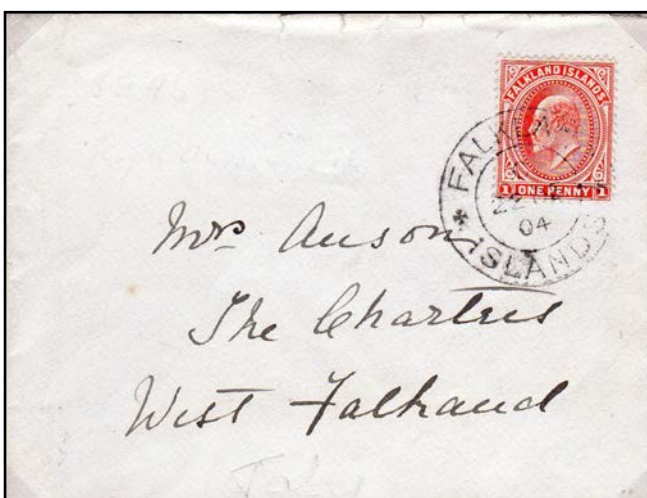 FALKLAND ISLANDS
1 ONE PENNY 1
FALK
22
04
ISLANDS
Mrs Anson
The Chartres
West Falkland